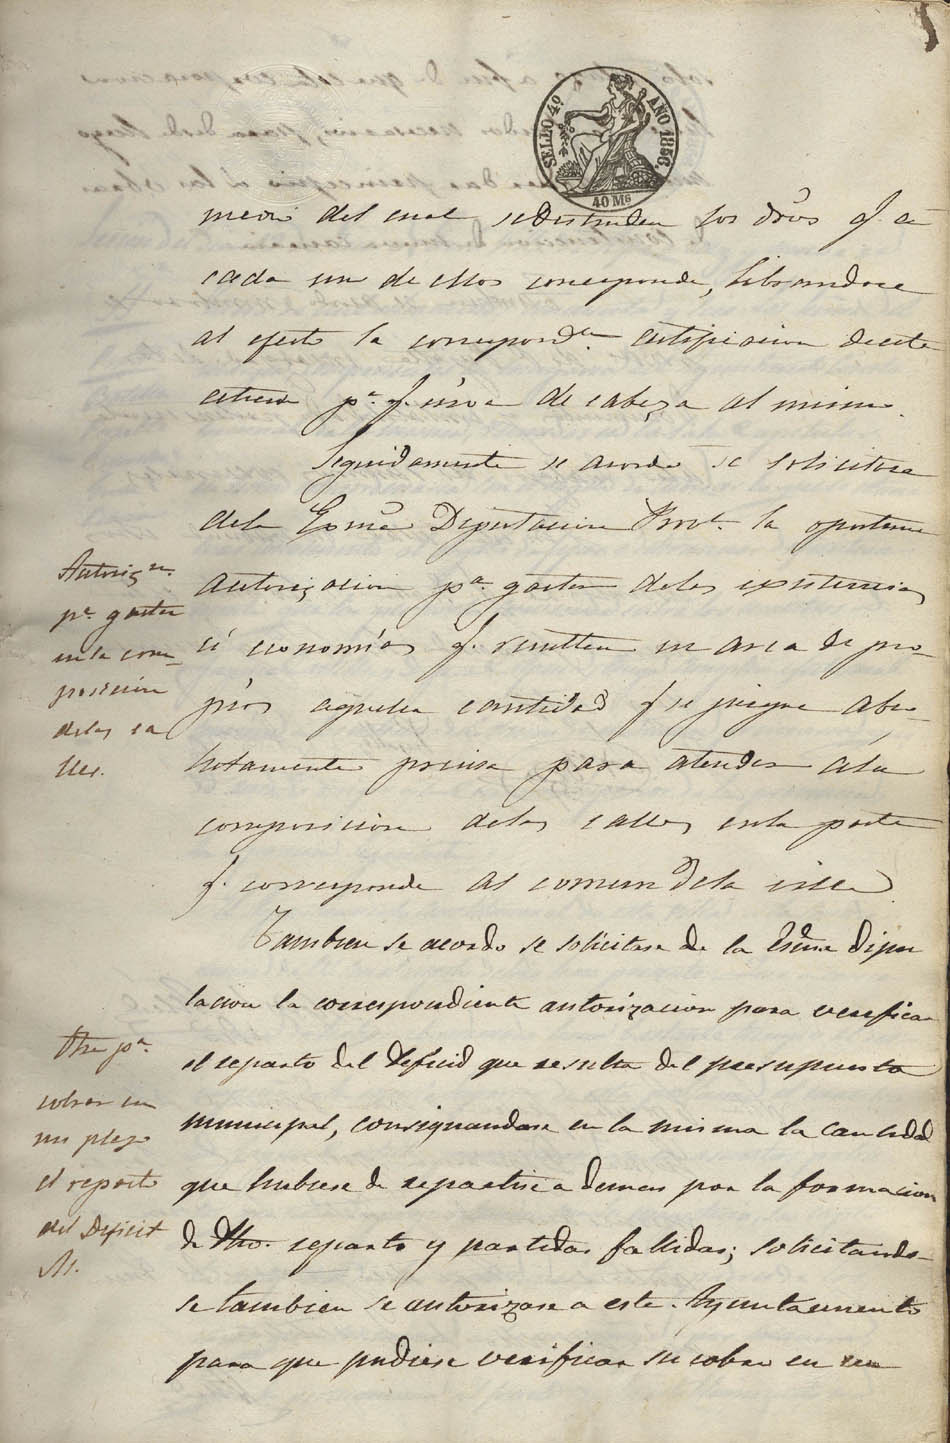 SELLO 4º AÑO 1856.
40 Ms
medio del cual se destruden los dros q. a
cada un de ellos corresponde, librandose
al efecto la correspondte. certificacion de este
acuerdo pa. q. sirva de cabeza al mismo.
Seguidamente se acordó se solicitase
dela Exma Diputacion Provl. la oportuna
autorizacion pa. gastar delas existencias
ó economías q. resulten en arca de pro-
pios aquella cantidad q se juzgue abso-
lutamente precisa para atender ala
composicion delas calles enla parte
q. corresponde al comun dela villa
Tambien se acordo se solicitase de la Esma dipu
tacion la correspondiente autorizacion para verificar
el reparto del deficid que resulta del presupuesto
municipal, consignandose en la misma la cantidad
que hubiese de repartirse ademas por la formacion
de dho. reparto y partidas fallidas; solicitando-
se tambien se autorizase a este Ayuntamiento
para que pudiese verificar su cobro en un
Autorizn.
pa. gastar
en la com-
posicion
delas ca
lles.
Otra pa.
cobrar en
un plazo
el reparto
del Deficit